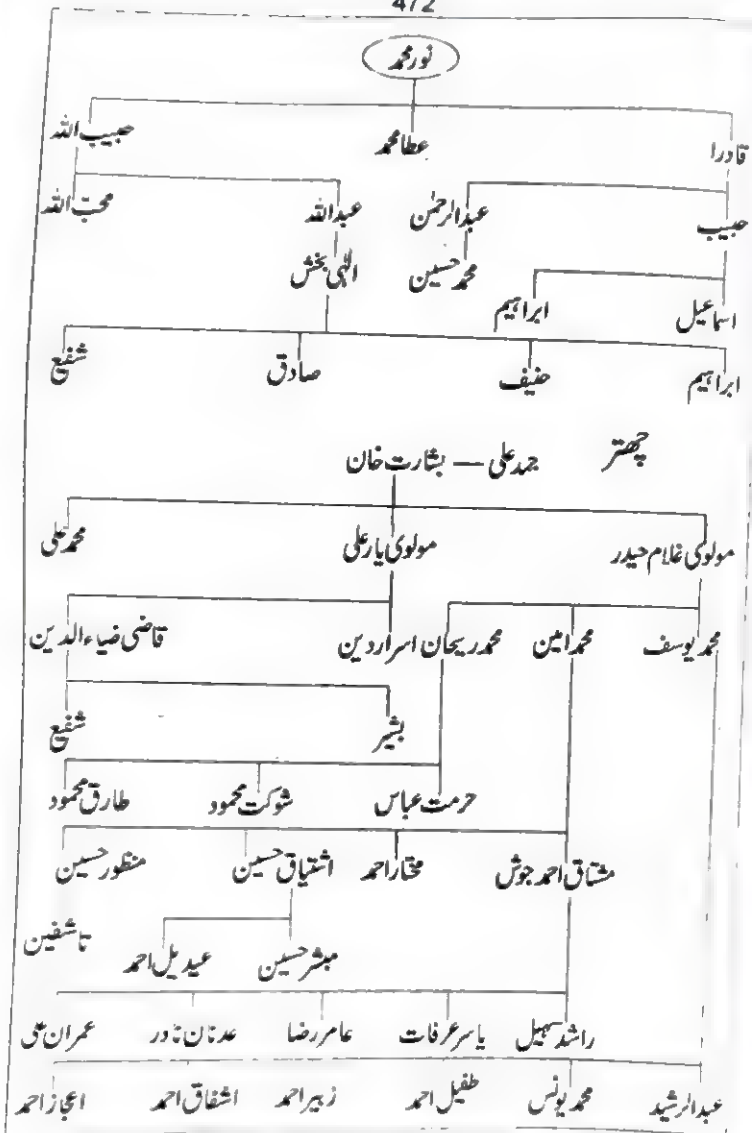 472
نور محمد
قادرا عطا محمد حبیب اللہ
حبیب عبدالرحمٰن عبداللہ محبّ اللہ
محمد حسین الٰہی بخش
اسماعیل ابراہیم
ابراہیم حنیف صادق شفیع
چھتر جمد علی — بشارت خان
مولوی غلام حیدر مولوی یار علی محمد علی
محمد یوسف محمد امین محمد ریحان اسرار دین قاضی ضیاء الدین
بشیر شفیع
حرمت عباس شوکت محمود طارق محمود
مشتاق احمد جوش مختار احمد اشتیاق حسین منظور حسین
مبشر حسین عیدیل احمد تاشفین
راشد سہیل یاسر عرفات عامر رضا عدنان نادر عمران علی
عبدالرشید محمد یونس طفیل احمد زبیر احمد اشفاق احمد اعجاز احمد